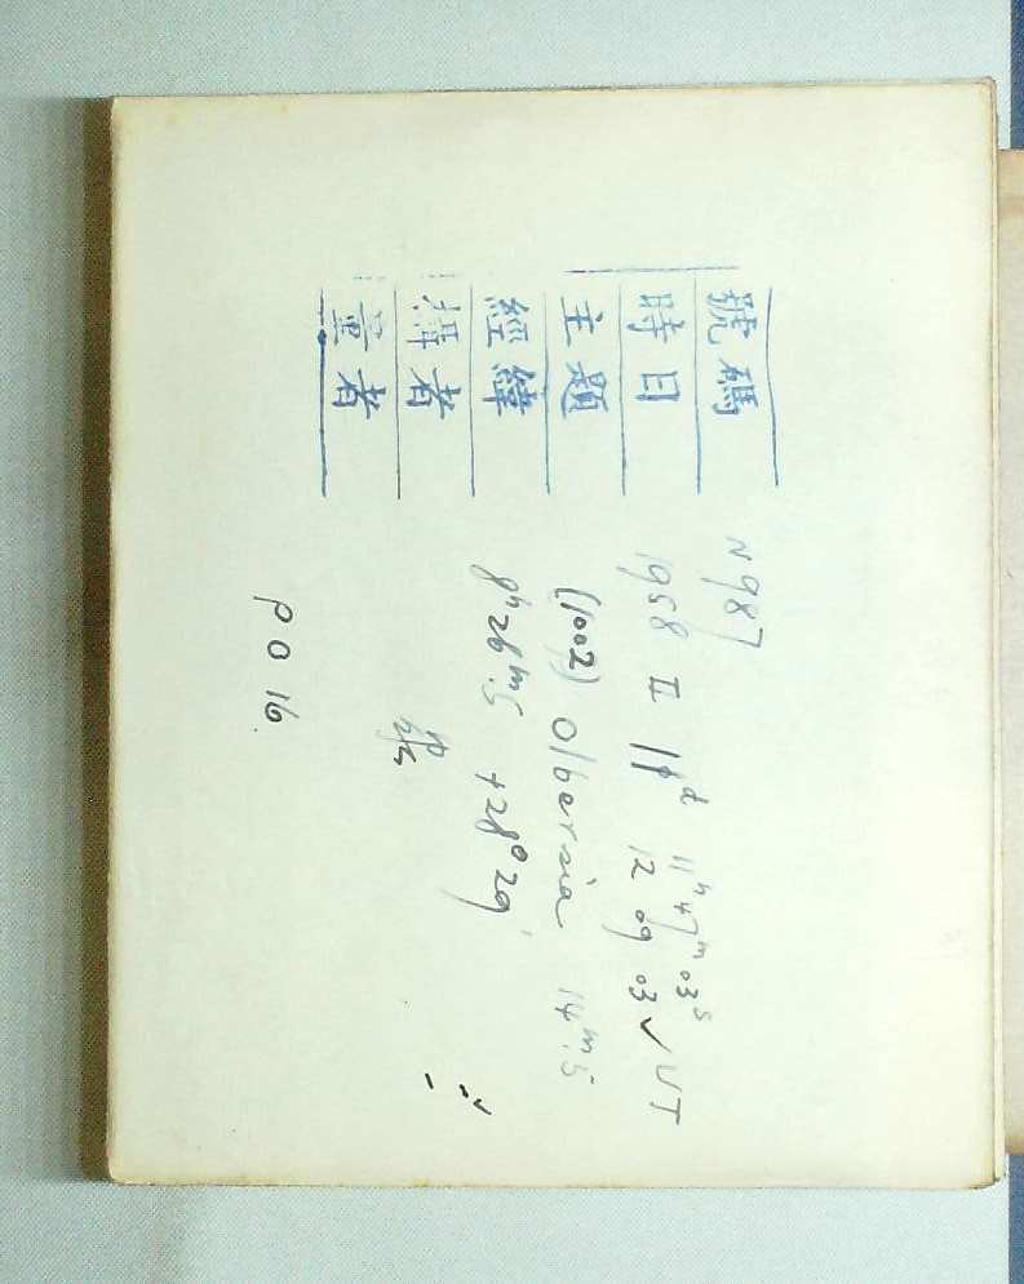 號碼 N 987
時日 1958 II 11ᵈ 11ʰ47ᵐ03ˢ
12 09 03 ✓ UT
主題 (1002) Olbersia 14ᵐ.5
經緯 8ʰ26ᵐ.5 +28°29′
攝者
量者
P016